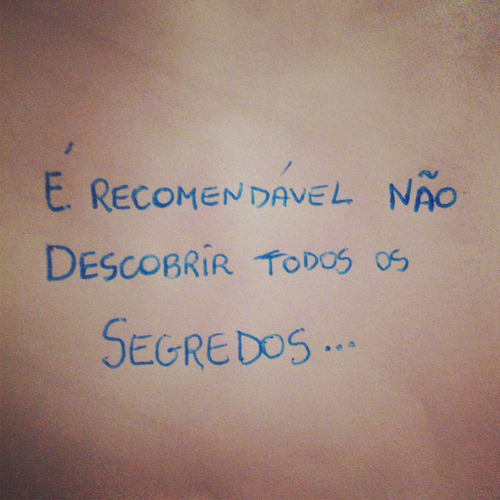 É RECOMENDÁVEL NÃO
DESCOBRIR TODOS OS
SEGREDOS...